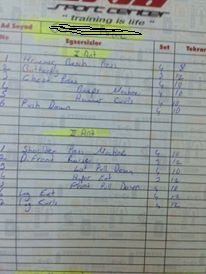 SPORT CENTER
"training is life"
Ad Soyad
No Egzersizler Set Tekrar
I. Ant
1 Bench Press 8
2 Butterfly 10
3 Chest Press 4 10
Biceps Machine 4 10
Hammer Curls 4 10
6 Push Down 4 10
II. Ant
1 Shoulder Press Machine 4 12
2 D. Front Raise 3 12
3 Lat Pull Down 4 12
4 3 12
Front Pull Down 3 12
Leg Ext 4 12
Leg Curls 4 12